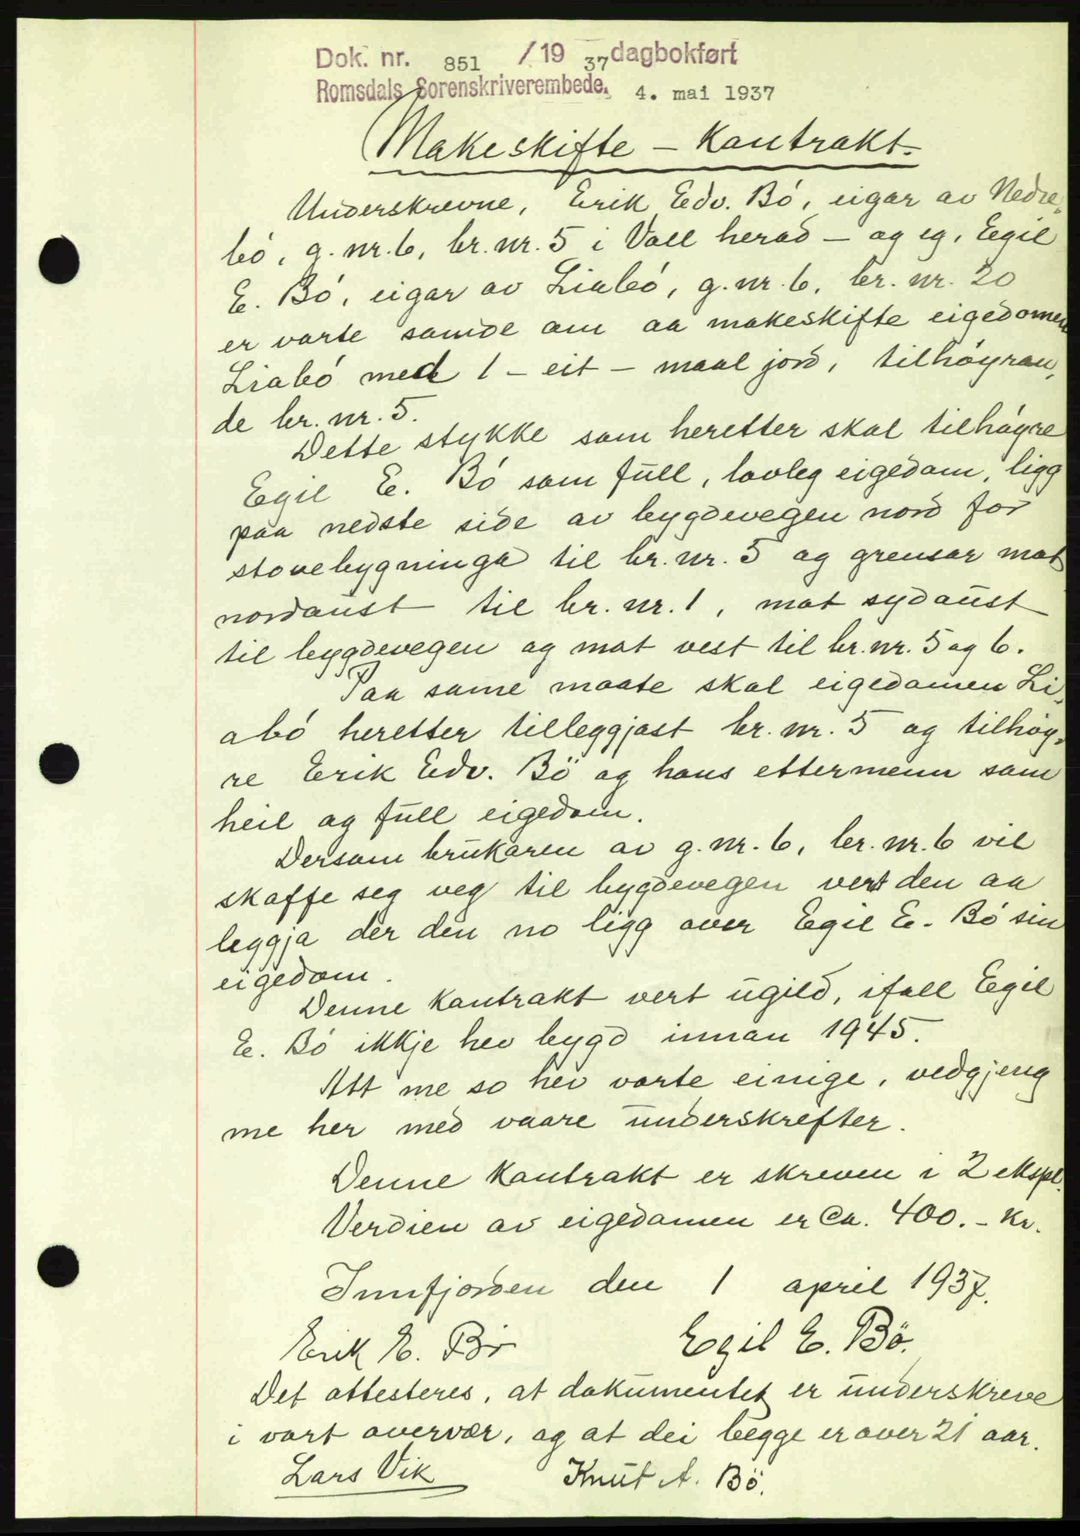 Dok. nr. 851 /1937 dagbokført
Romsdals Sorenskriverembede. 4. mai 1937
Makeskifte – Kontrakt.
Underskrevne, Erik Edv. Bö, eigar av Nedre-
bó, g. nr. 6, br. nr. 5 i Voll herad – og eg, Egil
E. Bó, eigar av Liabó, g. nr. 6, br. nr. 20
er vorte samde om aa makeskifte eigedomen
Liabó med 1 – eit – maal jord, tilhöyran-
de br. nr. 5.
Dette stykke som heretter skal tilhöyre
Egil E. Bó som full, lovleg eigedom, ligg
paa nedste side av bygdevegen nord for
stovebygninga til br. nr. 5 og grensar mot
nordaust til br. nr. 1, mot sydaust
til bygdevegen og mot vest til br. nr. 5 og 6.
Paa same maate skal eigedomen Li-
abó heretter tilleggjast br. nr. 5 og tilhöy-
re Erik Edv. Bö og hans ettermenn som
heil og full eigedom.
Dersom brukaren av g. nr. 6, br. nr. 6 vil
skaffe seg veg til bygdevegen vert den aa
leggja der den no ligg over Egil E. Bó sin
eigedom.
Denne kontrakt vert ugild, ifall Egil
E. Bó ikkje hev bygd innan 1945.
Att me so hev vorte einige, vedgjeng
me her med vaare underskrefter.
Denne kontrakt er skreven i 2 ekspl.
Verdien av eigedomen er ca. 400.– Kr.
Innfjorden den 1 april 1937.
Erik E. Bö Egil E. Bö.
Det attesteres, at dokumentet er underskreve
i vort overvær, og at dei begge er over 21 aar.
Lars Vik Knut A. Bö.